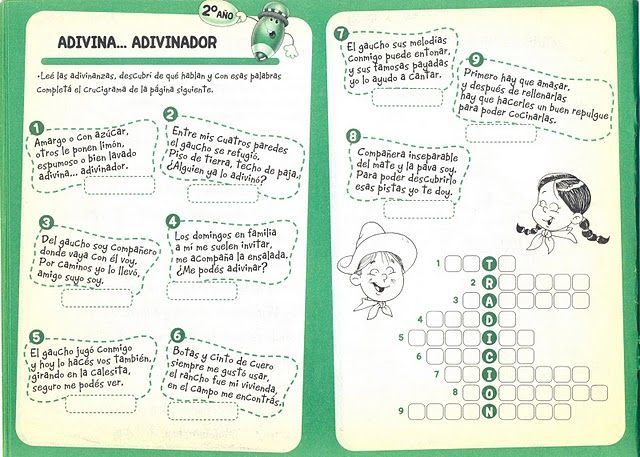 2º AÑO
ADIVINA... ADIVINADOR
•Leé las adivinanzas, descubrí de qué hablan y con esas palabras
completá el crucigrama de la página siguiente.
1
Amargo o con azúcar,
otros le ponen limón,
espumoso o bien lavado
adivina... adivinador.
2
Entre mis cuatros paredes
el gaucho se refugió.
Piso de tierra, techo de paja,
¿Alguien ya lo adivinó?
3
Del gaucho soy compañero
donde vaya con él voy.
Por caminos yo lo llevo,
amigo suyo soy.
4
Los domingos en familia
a mí me suelen invitar,
me acompaña la ensalada.
¿Me podés adivinar?
5
El gaucho jugó conmigo
y hoy lo haces vos también,
girando en la calesita,
seguro me podés ver.
6
Botas y cinto de cuero
siempre me gustó usar,
el rancho fue mi vivienda,
en el campo me encontrás.
7
El gaucho sus melodías
conmigo puede entonar,
y sus famosas payadas
yo lo ayudo a cantar.
8
Compañera inseparable
del mate y la pava soy.
Para poder descubrirlo
esas pistas yo te doy.
9
Primero hay que amasar,
y después de rellenarlas
hay que hacerles un buen repulgue
para poder cocinarlas.
1 T
2 R
3 A
4 D
5 I
6 C
7 I
8 O
9 N